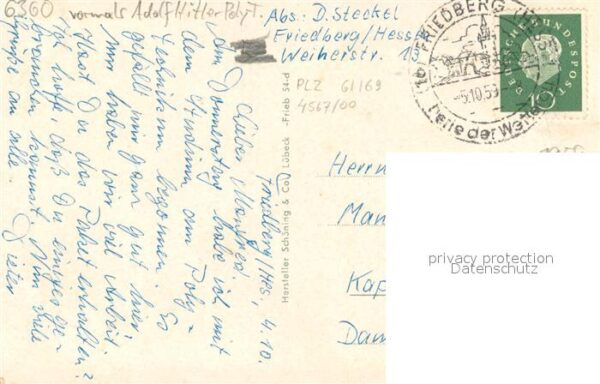 6360 vormals Adolf Hitler PolyT.
Abs: D. Steckel
Friedberg/Hessen
Weiherstr. 13
PLZ 61169
4567/00
(16) FRIEDBERG (HESS)
-5.10.59
DEUTSCHE BUNDESPOST
10
Hersteller Schöning & Co, Lübeck -Frieb 54-d
Friedberg/Hes. 4.10.
Lieber Manfred!
Am Donnerstag habe ich mit
dem Studium am Poly-
technikum begonnen. Es
gefällt mir ganz gut hier
Nur haben wir viel Arbeit.
Hast Du das Paket erhalten?
Ich hoffe, daß Du einiges ge-
brauchen kannst. Nun viele
Grüße an alle. Dieter
Herrn
Man
Kap
Dam
privacy protection
Datenschutz